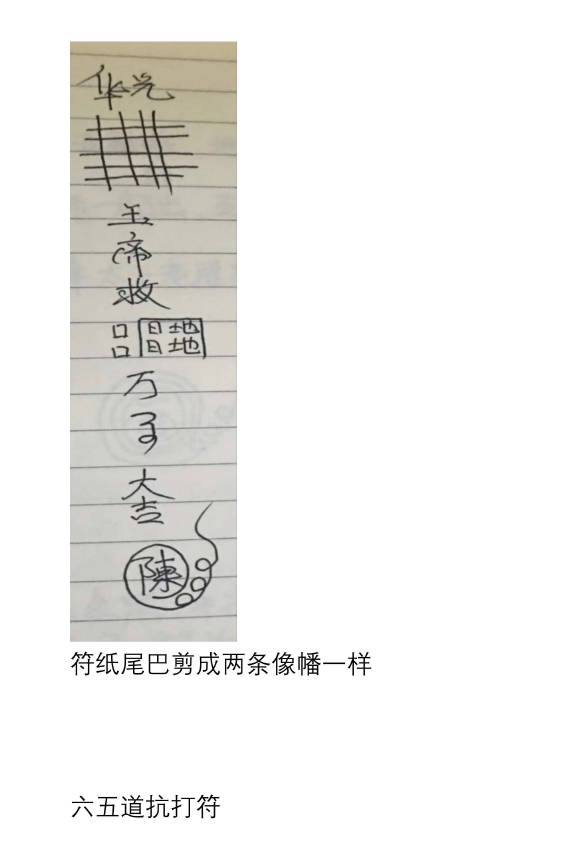 华光
玉
帝
救
口 日 地
口 日 地
万
大
吉
陳
符纸尾巴剪成两条像幡一样
六五道抗打符